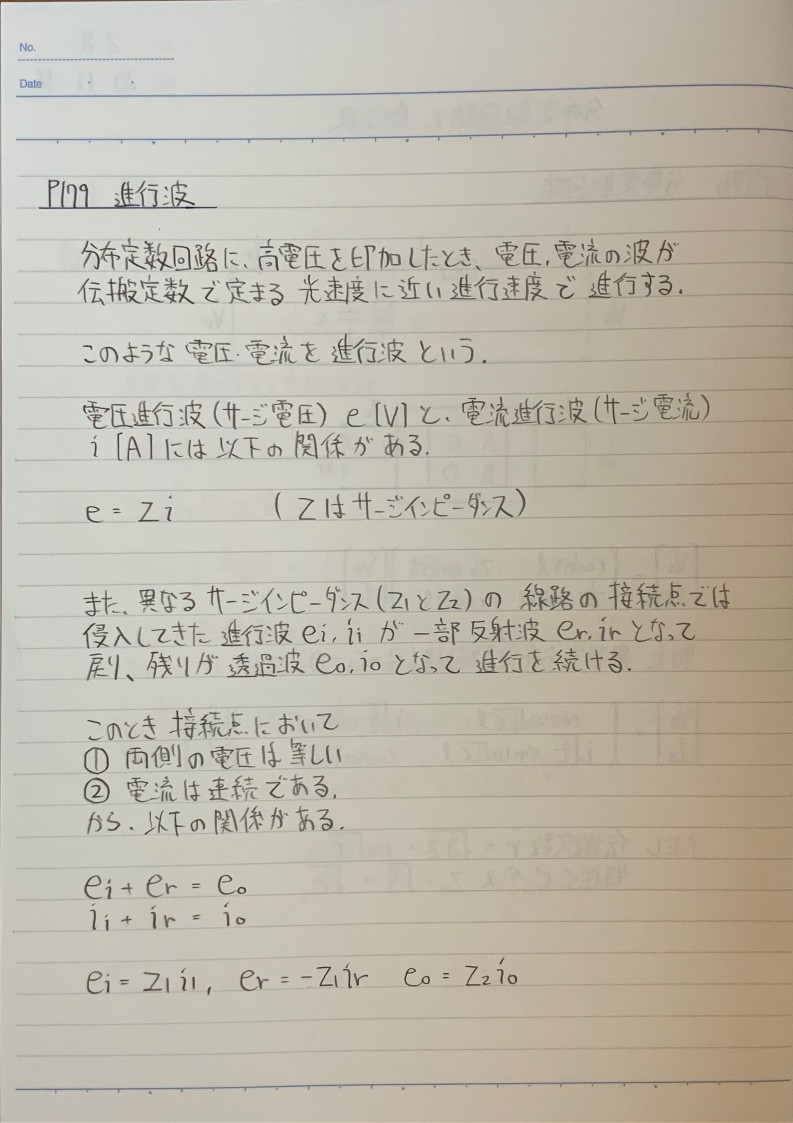 No.
Date
P179 進行波
分布定数回路に、高電圧を印加したとき、電圧,電流の波が
伝搬定数で定まる 光速度に近い進行速度で進行する.
このような電圧・電流を進行波という.
電圧進行波(サージ電圧) e [V]と、電流進行波(サージ電流)
i [A]には以下の関係がある.
e = Zi (Zはサージインピーダンス)
また、異なるサージインピーダンス(Z1とZ2)の 線路の接続点では
侵入してきた進行波ei, iiが一部反射波er, irとなって
戻り、残りが透過波eo, ioとなって進行を続ける.
このとき接続点において
① 両側の電圧は等しい
② 電流は連続である.
から、以下の関係がある.
ei + er = eo
ii + ir = io
ei = Z1i1, er = -Z1ir eo = Z2io